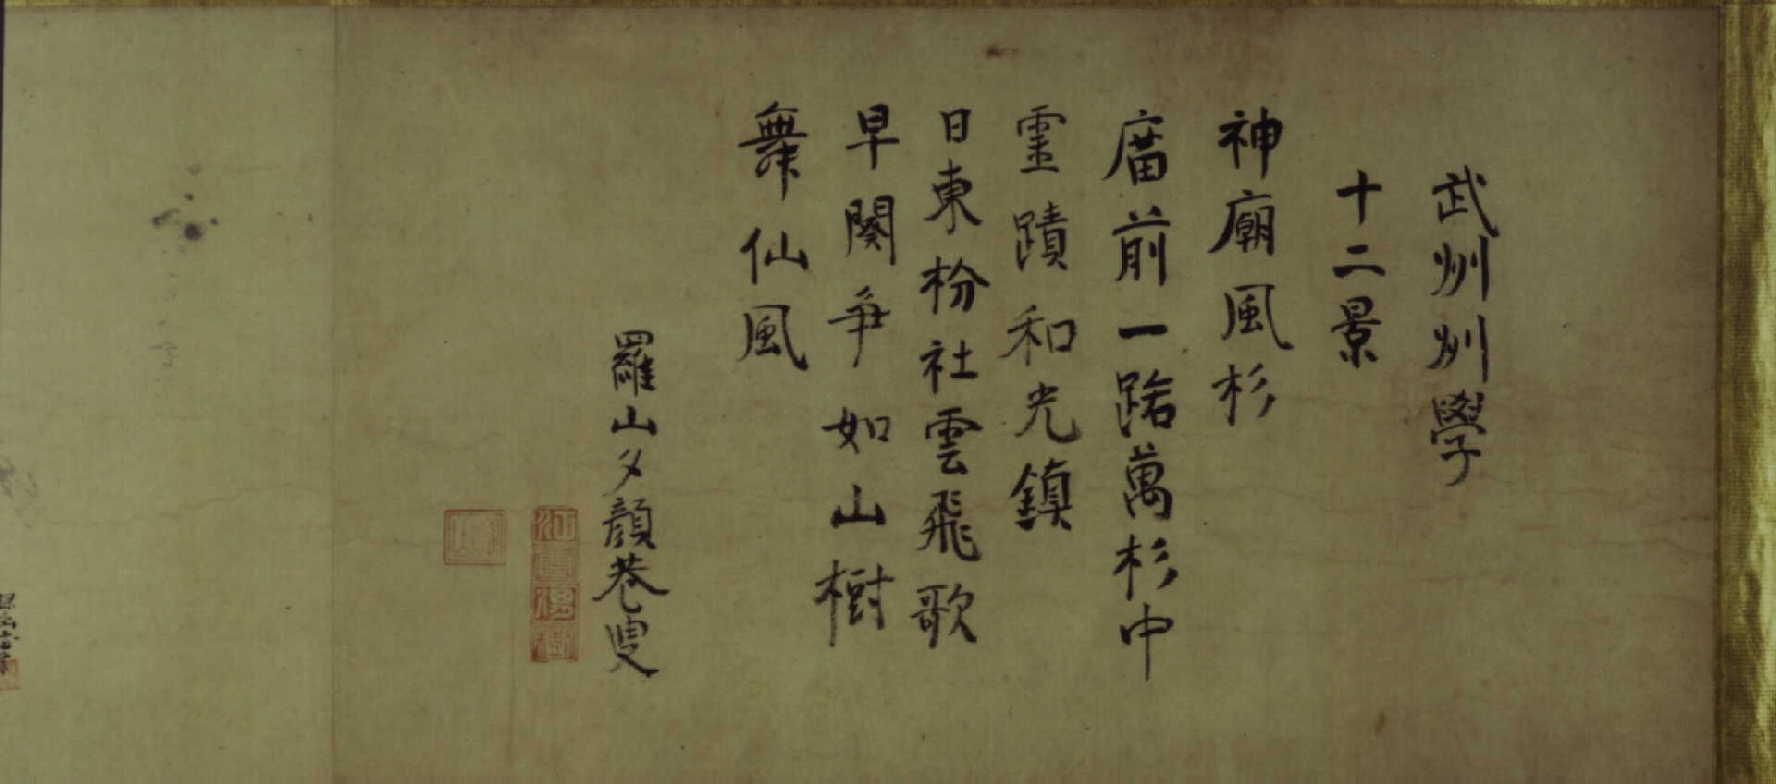 武州州學
十二景
神廟風杉
廟前一路萬杉中
靈蹟和光鎮
日東枌社雲飛歌
早闋爭如山樹
舞仙風
羅山夕顏巷叟